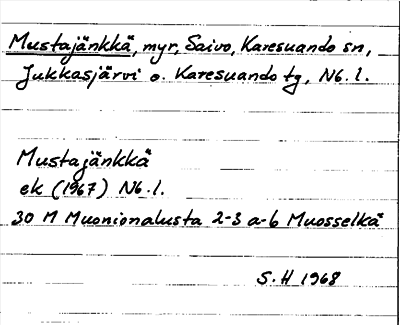 Mustajänkkä, myr, Saivo, Karesuando sn,
Jukkasjärvi o. Karesuando tg, Nb. l.
Mustajänkkä
ek (1967) Nb. l.
30 M Muonionalusta 2-3 a-b Muosselkä
S. H 1968